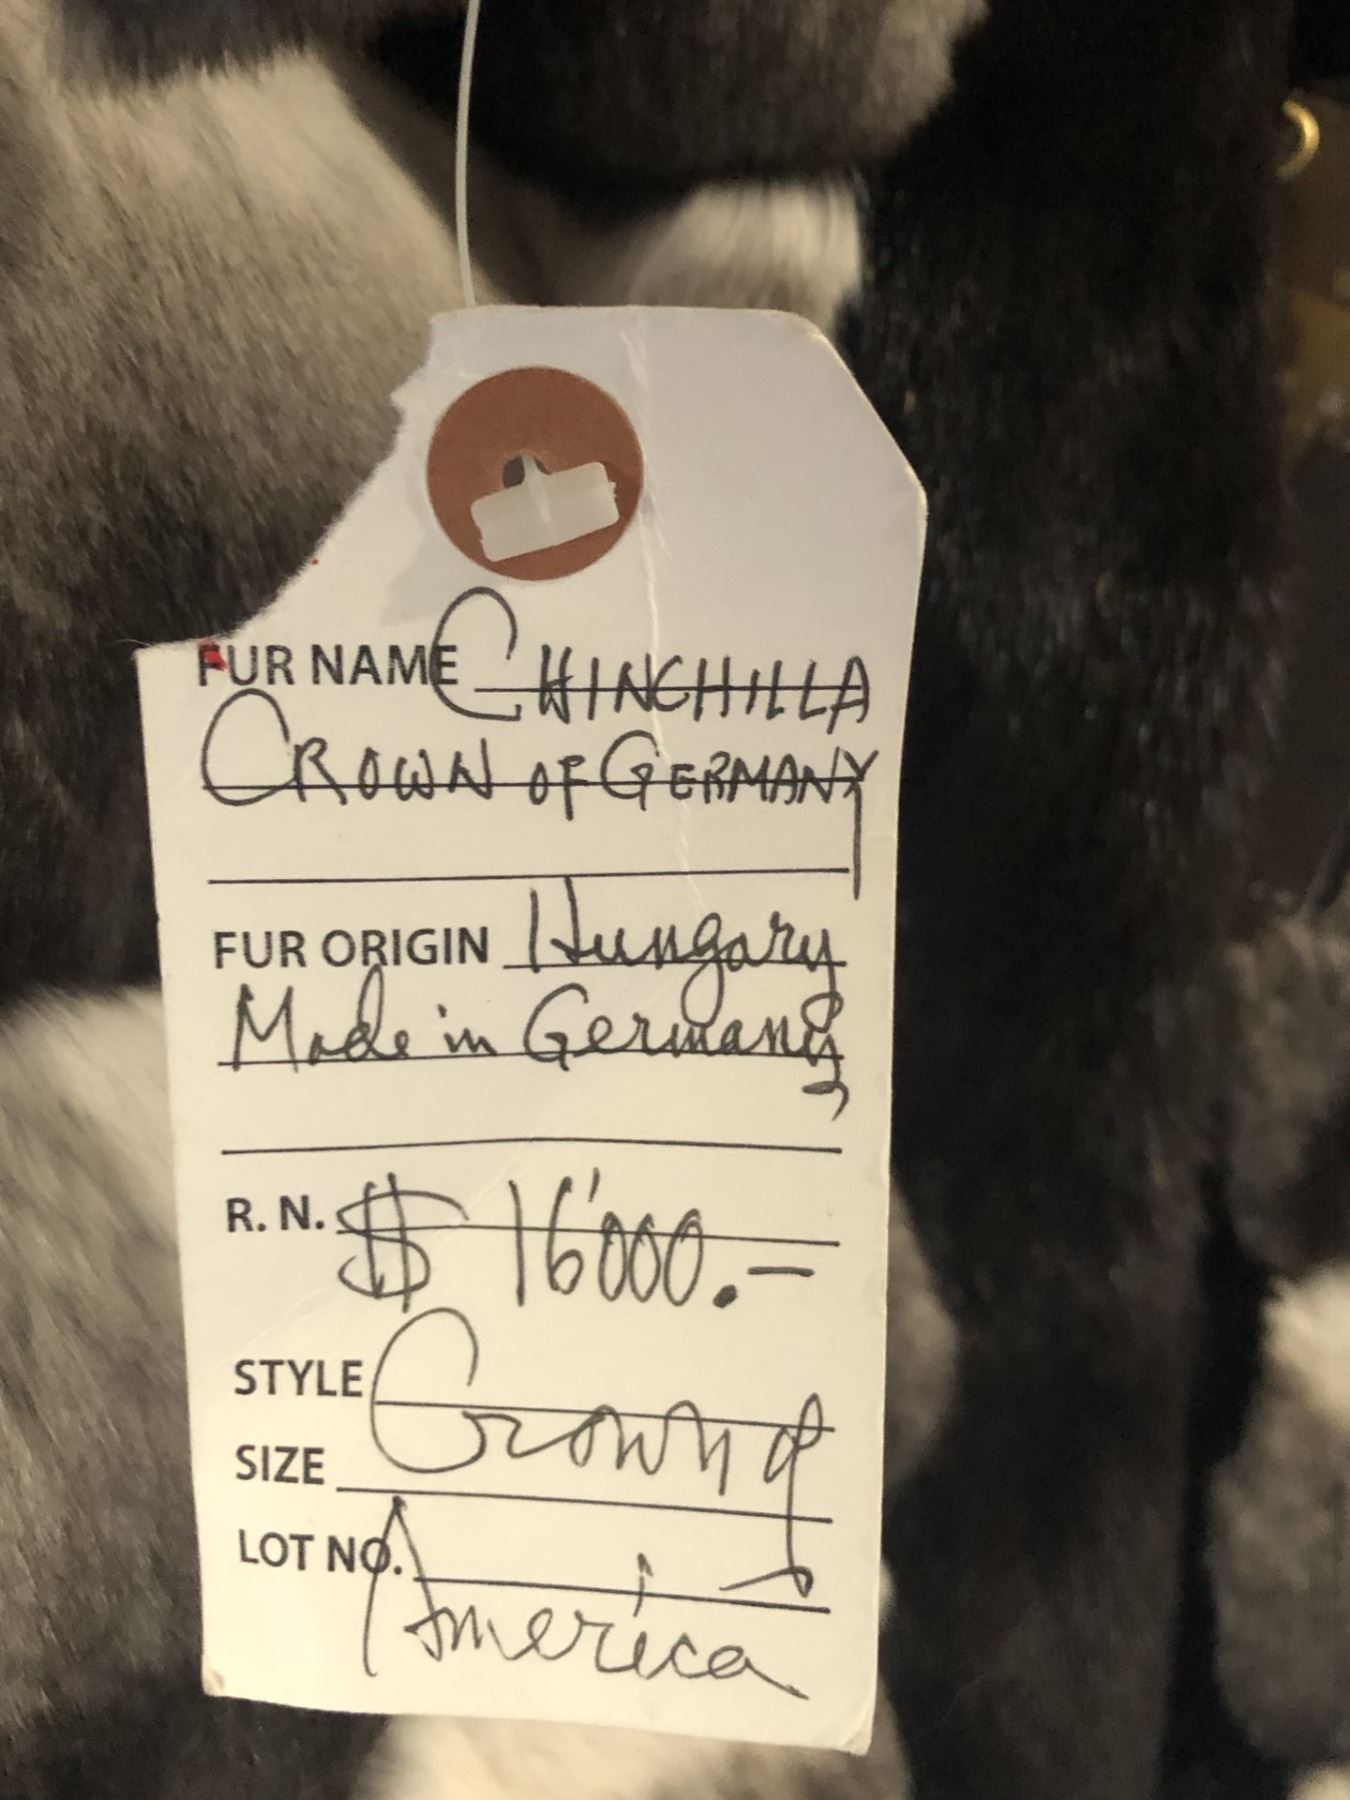 FUR NAME CHINCHILLA
CROWN OF GERMANY
FUR ORIGIN Hungary
Made in Germany
R. N. $ 16'000.-
STYLE Crown of
SIZE
LOT NO.
America